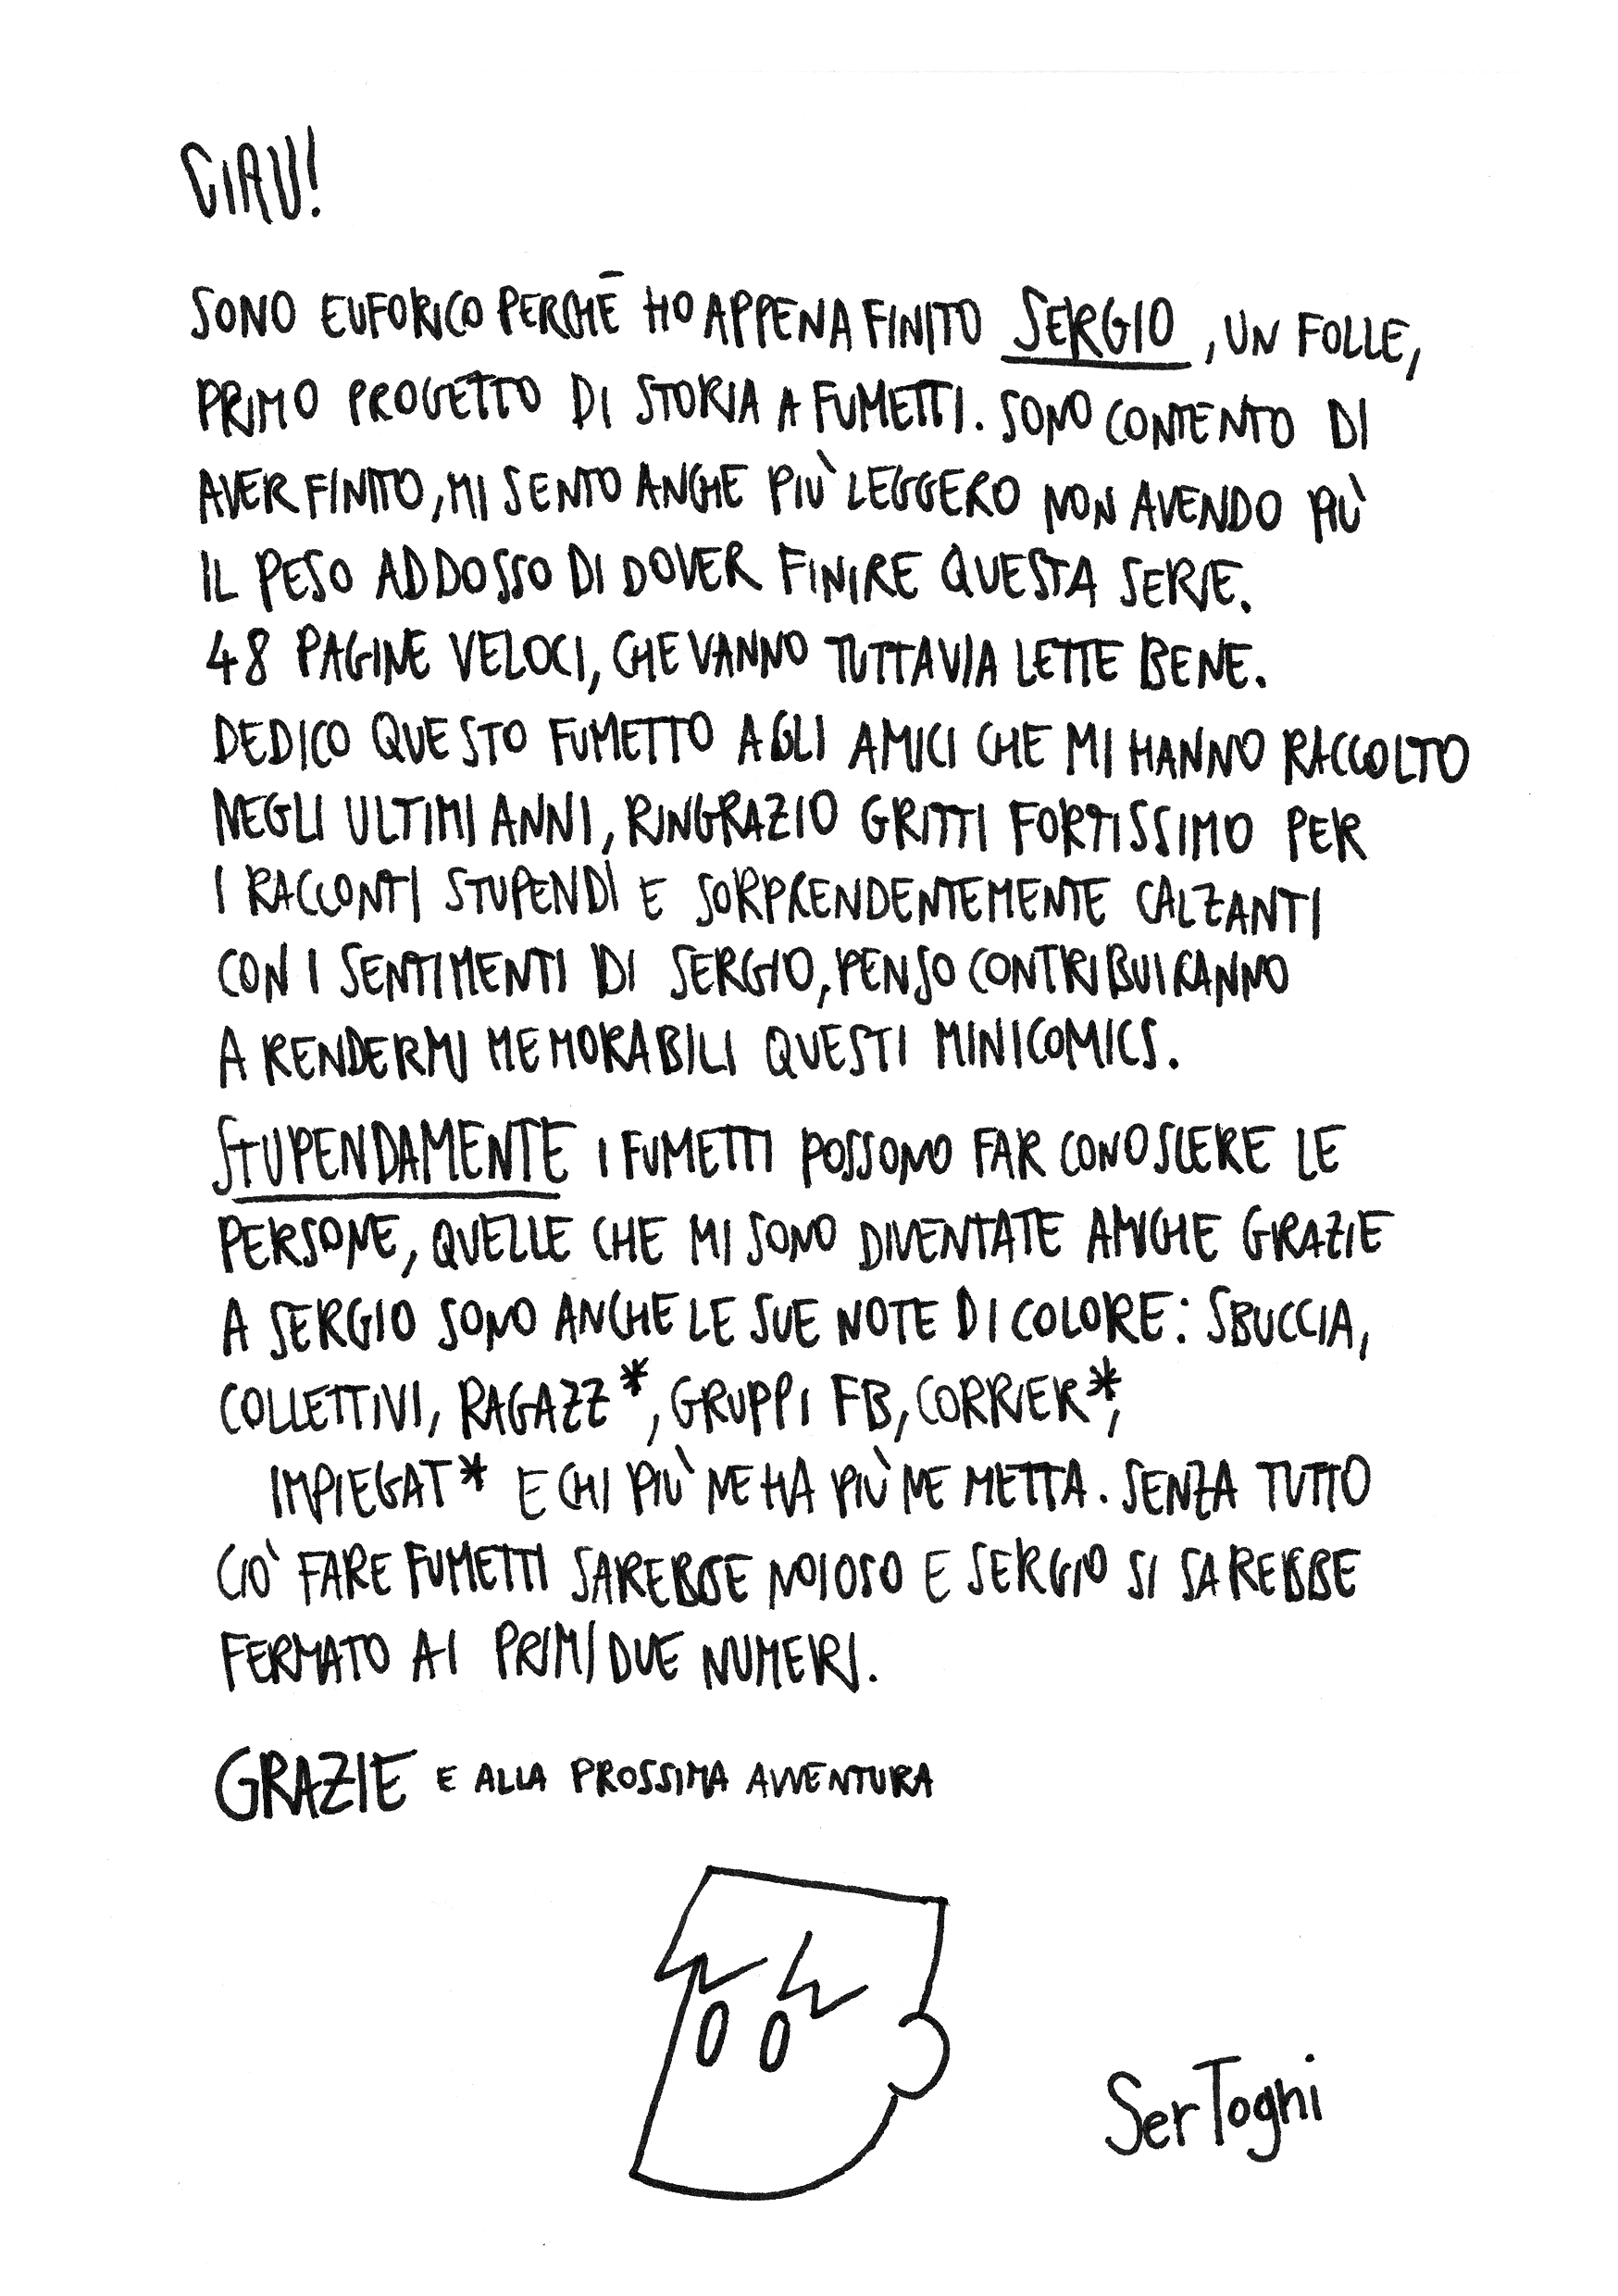 CIAU!
SONO EUFORICO PERCHÉ HO APPENA FINITO SERGIO, UN FOLLE,
PRIMO PROGETTO DI STORIA A FUMETTI. SONO CONTENTO DI
AVER FINITO, MI SENTO ANCHE PIÙ LEGGERO NON AVENDO PIÙ
IL PESO ADDOSSO DI DOVER FINIRE QUESTA SERIE.
48 PAGINE VELOCI, CHE VANNO TUTTAVIA LETTE BENE.
DEDICO QUESTO FUMETTO AGLI AMICI CHE MI HANNO RACCOLTO
NEGLI ULTIMI ANNI, RINGRAZIO GRITTI FORTISSIMO PER
I RACCONTI STUPENDI E SORPRENDENTEMENTE CALZANTI
CON I SENTIMENTI DI SERGIO, PENSO CONTRIBUIRANNO
A RENDERMI MEMORABILI QUESTI MINICOMICS.
STUPENDAMENTE I FUMETTI POSSONO FAR CONOSCERE LE
PERSONE, QUELLE CHE MI SONO DIVENTATE AMICHE GRAZIE
A SERGIO SONO ANCHE LE SUE NOTE DI COLORE: SBUCCIA,
COLLETTIVI, RAGAZZ*, GRUPPI FB, CORRIER*,
IMPIEGAT* E CHI PIÙ NE HA PIÙ NE METTA. SENZA TUTTO
CIO' FARE FUMETTI SAREBBE NOIOSO E SERGIO SI SAREBBE
FERMATO AI PRIMI DUE NUMERI.
GRAZIE E ALLA PROSSIMA AVVENTURA
SerToghi